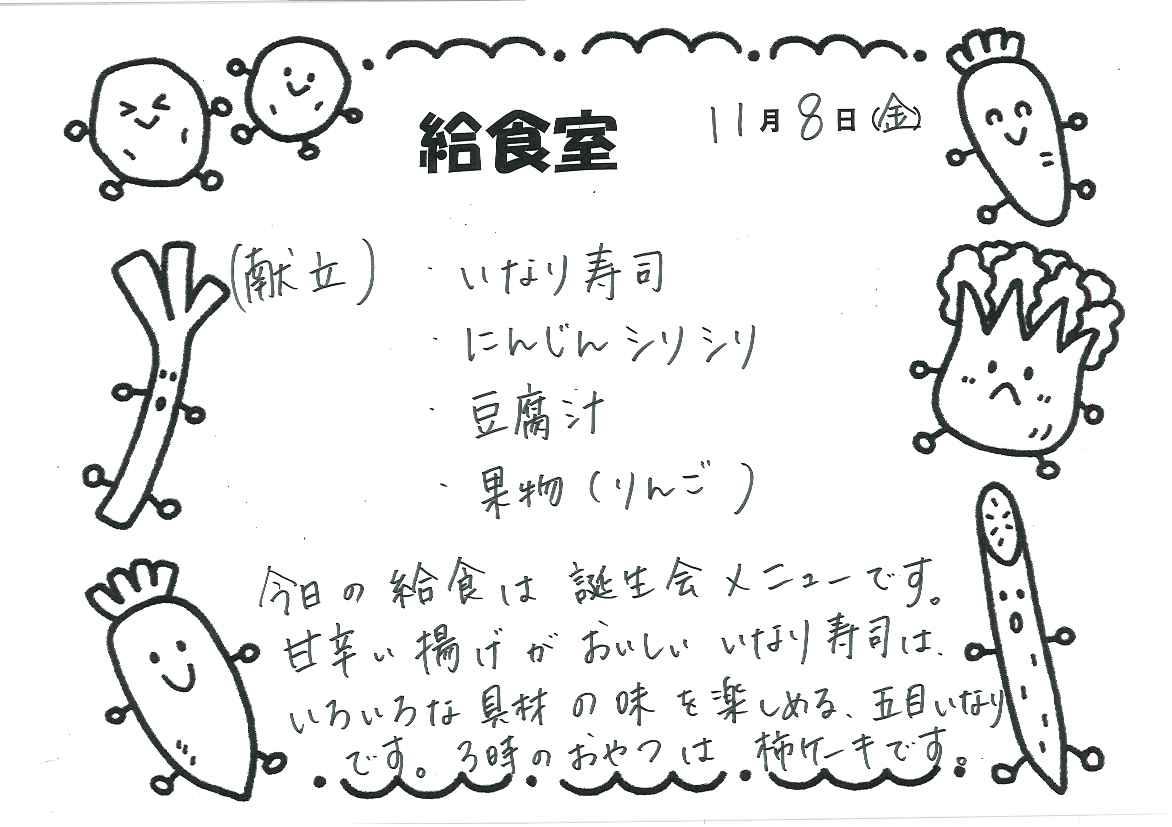 給食室
11月8日(金)
(献立)
・いなり寿司
・にんじんシリシリ
・豆腐汁
・果物(りんご)
今日の給食は誕生会メニューです。
甘辛い揚げがおいしいいなり寿司は、
いろいろな具材の味を楽しめる、五目いなり
です。3時のおやつは柿ケーキです。